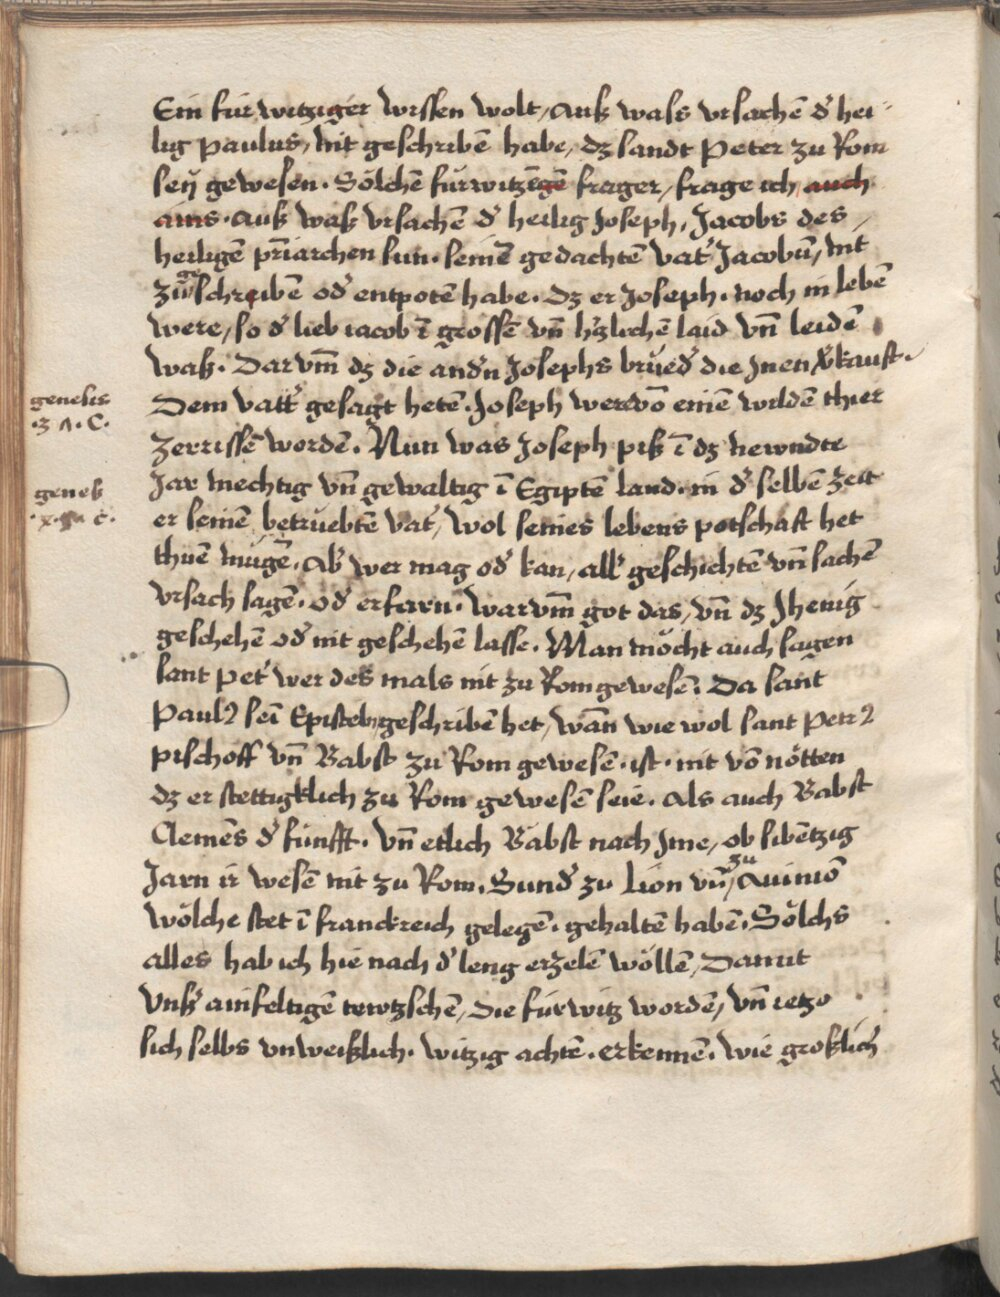 Ein fürwitziger wissen wolt, Auß wass vrsachē d' hei-
lig Paulus, Nit geschribē habe, dz sandt Peter zu Rom
seÿ gewesen. Sölchē fürwitzigē frager, frage ich auch
ains. Auß waß vrsachē d' heilig Joseph, Jacobs des
heiligē pr̄iarchen sun. seinē gedachtē vat' Jacobū, nit
zu geschreibē od' entpotē habe. Dz er Joseph. noch in lebē
were, so d' lieb iacob ī grossē vn̄ h'tzlichē laid vn̄ leidē
waß. Darvm̄ dz die and'n Josephs brüed' die Jnen v'kauft.
Dem vatt' gesagt hetē. Joseph were vō einē wildē thier
genesis
.37. C.
Zerrissē wordē. Nun was Joseph piß ī dz newndte
Jar mechtig vn̄ gewaltig ī Egiptē land. in d' selbē zeit
geneß
er seinē betrüebtē vat', wol seines lebens potschaft het
thuē mügē. Ab' wer mag od' kan, all' geschichtē vn̄ sachē
vrsach sagē. od' erfarn. warvm̄ got das, vn̄ dz Jhenig
geschehē od' nit geschehē lasse. Man möcht auch sagen
sant Pet' wer des mals nit zu Rom gewesē. Da sant
Paulꝰ sei Epistel geschribē het, wān wie wol sant Petrꝰ
pischoff vn̄ Babst zu Rom gewesē. ist. nit vō nötten
dz er stettigklich zu Rom gewesē seie. Als auch Babst
Clemēs d' fünfft. vn̄ etlich Bäbst nach Jme, ob sibētzig
Jarn ir wesē nit zu Rom. Sund' zu Lion vn̄ zu Auiniō
wölche stet ī franckreich gelegē. gehaltē habē. Sölchs
alles hab ich hie nach d' leng erzelē wöllē, Damit
vnß' ainfeltigē tewtzschē, Die fürwitz wordē, vn̄ ietzo
sich selbs vnweißlich. witzig achtē. erkennē. wie groblich